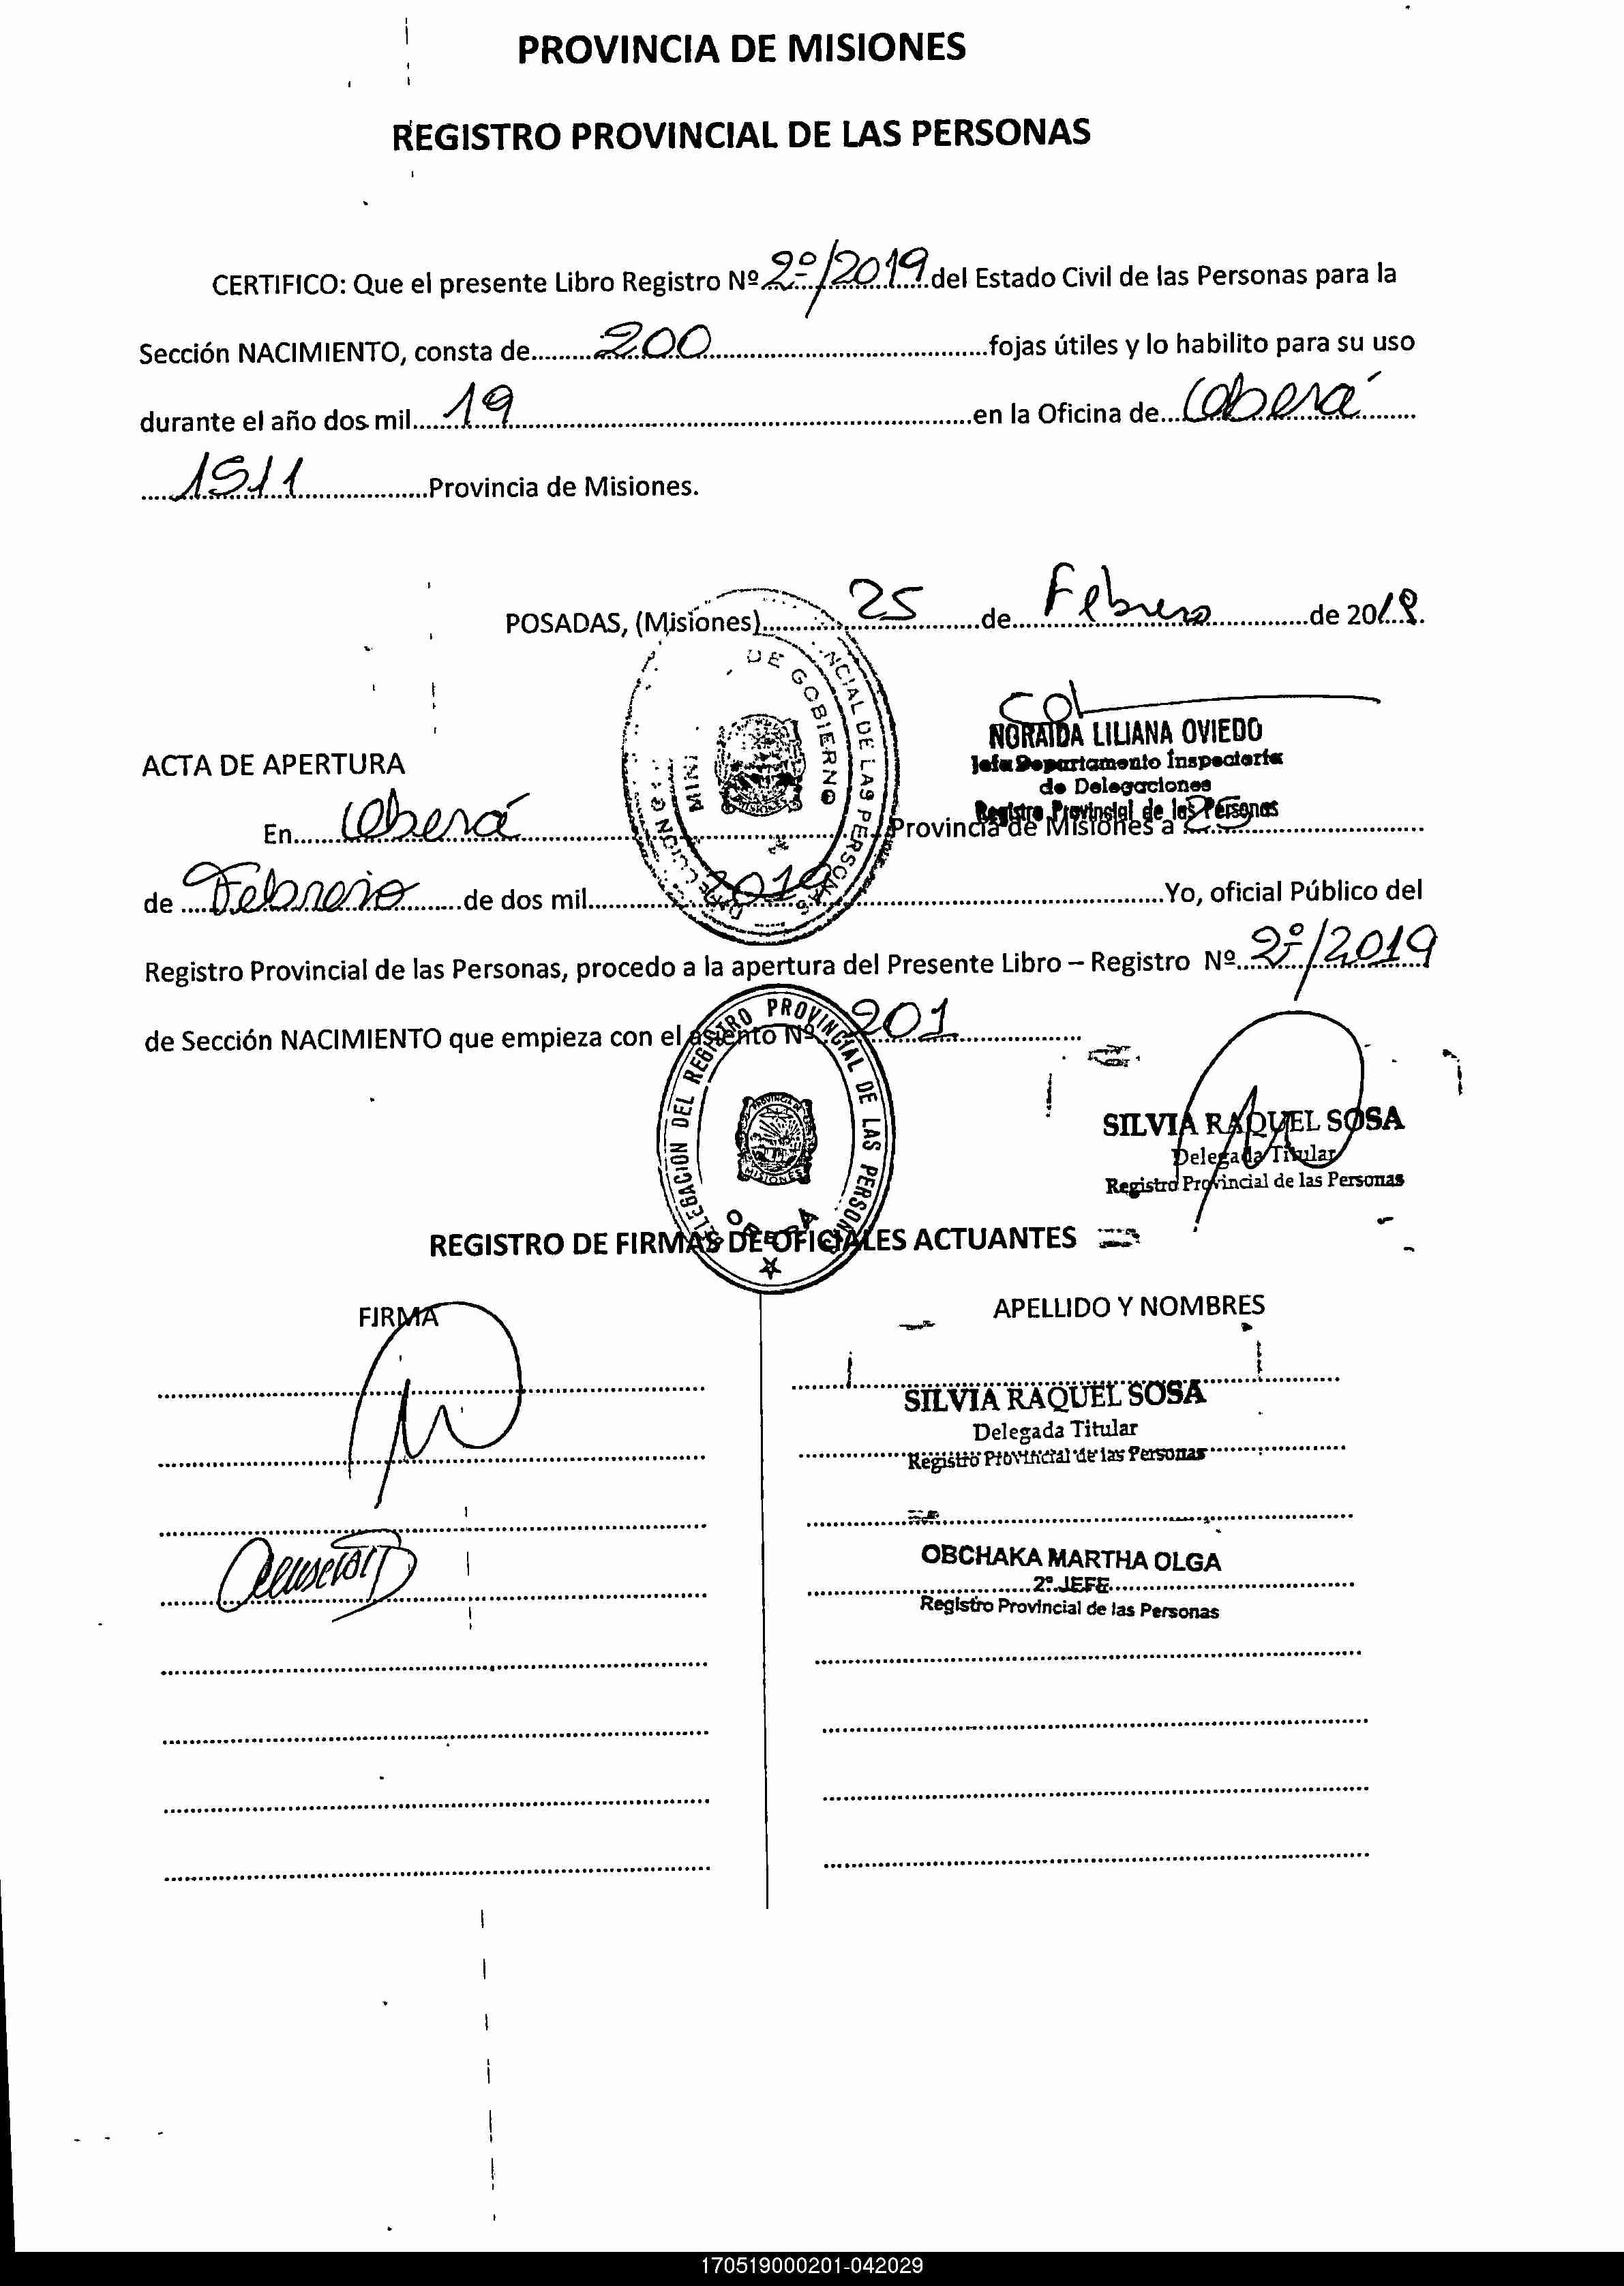 PROVINCIA DE MISIONES
REGISTRO PROVINCIAL DE LAS PERSONAS
CERTIFICO: Que el presente Libro Registro Nº 2º/2019 del Estado Civil de las Personas para la
Sección NACIMIENTO, consta de 200 fojas útiles y lo habilito para su uso
durante el año dos mil 19 en la Oficina de Oberá
1511 Provincia de Misiones.
POSADAS, (Misiones) 25 de Febrero de 2019.
NORAIDA LILIANA OVIEDO
Jefa Departamento Inspectoria
de Delegaciones
Registro Provincial de las Personas
ACTA DE APERTURA
En Oberá Provincia de Misiones a 25
de Febrero de dos mil 2019 Yo, oficial Público del
Registro Provincial de las Personas, procedo a la apertura del Presente Libro – Registro Nº 2º/2019
de Sección NACIMIENTO que empieza con el asiento Nº 201
DELEGACIÓN DEL REGISTRO PROVINCIAL DE LAS PERSONAS
PROVINCIA DE
MISIONES
OBERA
SILVIA RAQUEL SOSA
Delegada Titular
Registro Provincial de las Personas
REGISTRO DE FIRMAS DE OFICIALES ACTUANTES
FIRMA APELLIDO Y NOMBRES
SILVIA RAQUEL SOSA
Delegada Titular
Registro Provincial de las Personas
OBCHAKA MARTHA OLGA
2º JEFE
Registro Provincial de las Personas
170519000201-042029